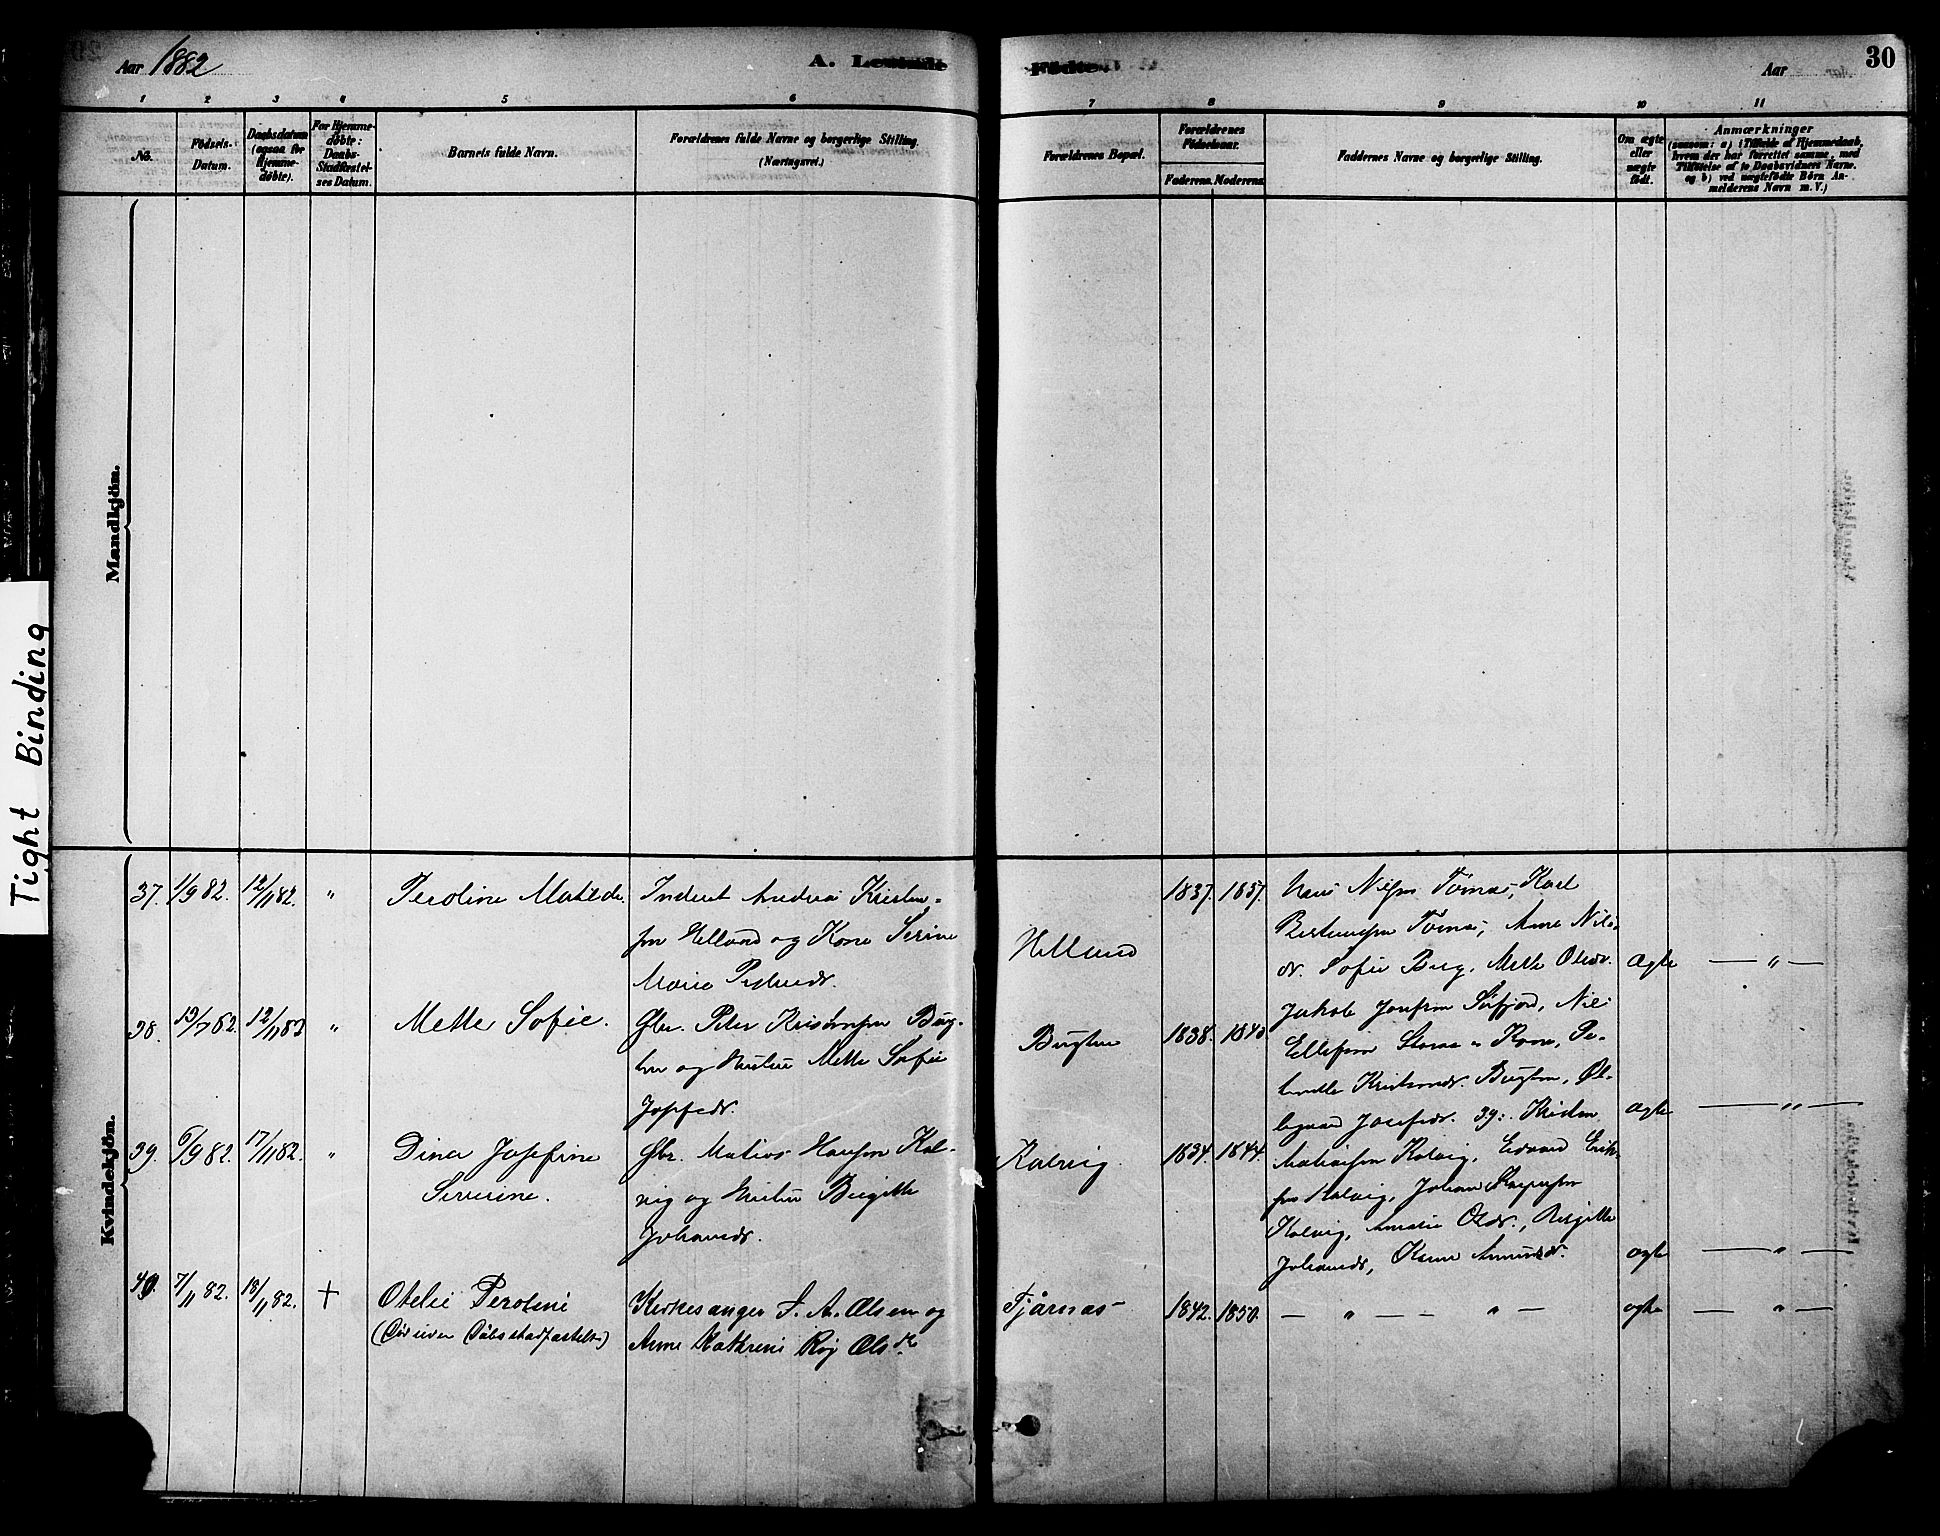 Tight Binding
Aar 1882
A. Levende
Fødte.
Aar
30
1 2 3 4 5 6 7 8 9 10 11
No.
Fødsels-
Datum.
Daabsdatum
(ogsaa for
Hjemme-
døbte).
For Hjemme-
døbte:
Daabs-
Stadfæstel-
ses Datum.
Barnets fulde Navn.
Forældrenes fulde Navne og borgerlige Stilling.
(Næringsvei.)
Forældrenes Bopæl.
Forældrenes
Fødselsaar.
Faderens. Moderens.
Faddernes Navne og borgerlige Stilling.
Om ægte
eller
uægte
født.
Anmærkninger
(saasom: a) i Tilfælde af Hjemmedaab,
hvem der har forrettet samme, med
Tilføielse af to Daabsvidners Navne.
og b) ved uægtefødte Børn An-
melderens Navn m. V.)
Mandkjön.
Kvindekjön.
37. 1/9 82. 12/11 82. "
Peroline Matilde.
Inderst Andreas Kristen-
sen Helland og Kone Serine
Marie Pedersdr.
Helland
1837. 1857.
Hans Nilsen Tömas, Karl
Tömas, Anne Nils-
dr. Sofie Berg, Mette Olsdr.
ægte — " —
38. 13/7 82. 12/11 82 "
Mette Sofie.
Gbr. Peter Kristensen Bug-
ten og Hustru Mette Sofie
Josefsdr.
Bugten
1838. 1840.
Jakob Josefsen Sörfjord, Nils
Ellefsen Storaa o Kone, Pe-
Bugten, Ol-
Josefsdr. 39: Kristen
ægte — " —
39. 6/9 82. 17/11 82. "
Dina Josefine
Severine.
Gbr. Matias Hansen Kal-
vig og Hustru Birgitte
Johansdr.
Kalvig.
1834. 1844.
Matiassen Kalvig, Edvard Erik-
sen Kalvig, Johan
Kalvig, Amalie Olsdr., Birgitte
Johansdr,
ægte — " —
40. 7/11 82. 18/11 82. +
Otelie Peroline
(Död uden Daabsstadfæstelse)
Kirkesanger S. A. Olsen og
Anne Kathrine Roj Olsdr
Tjårnæs
1842. 1850.
— " — " —
ægte — " —